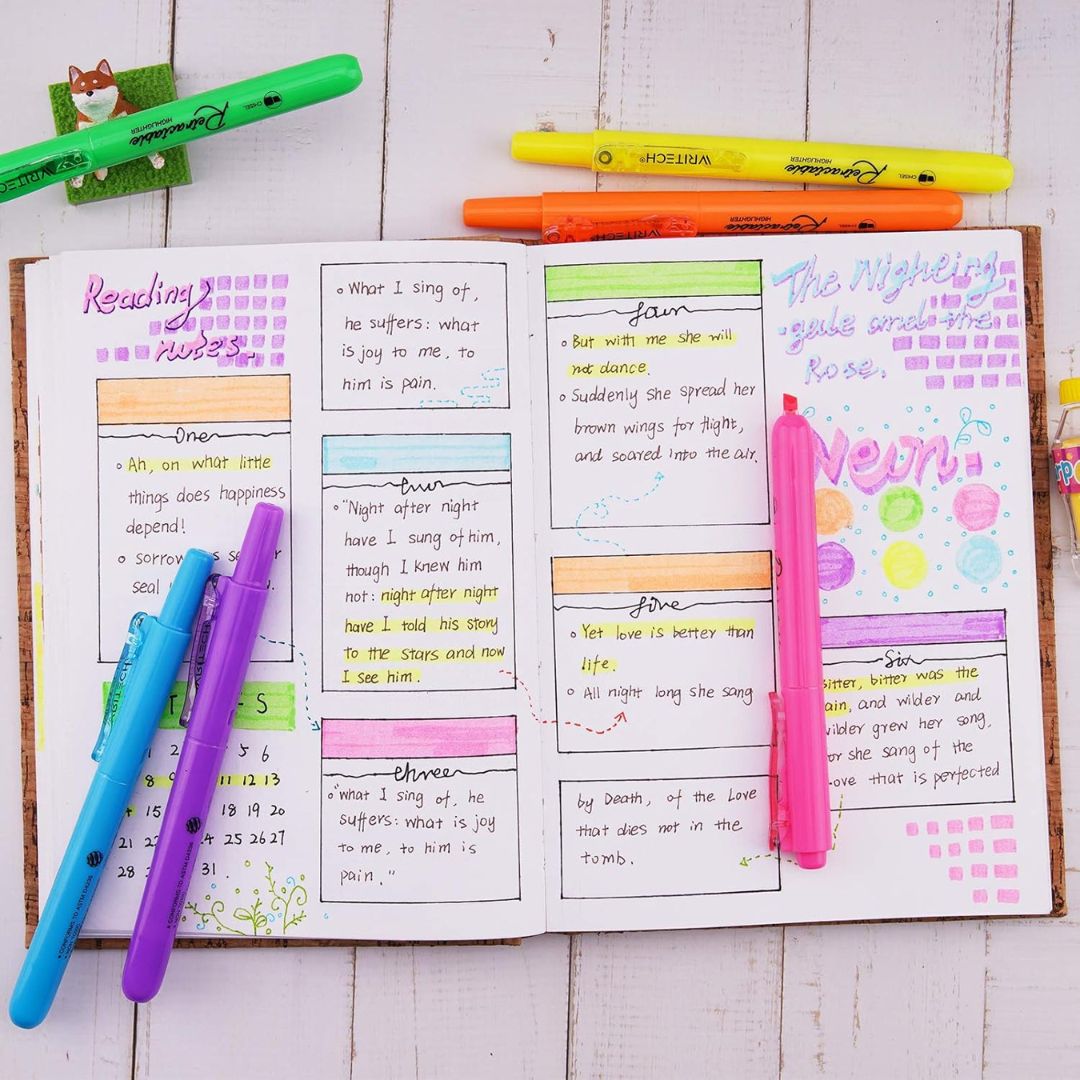 WRITECH
Retractable
HIGHLIGHTER
CHISEL
WRITECH®
Retractable
HIGHLIGHTER
CHISEL
WRITECH
Retractable
HIGHLIGHTER
CHISEL
Reading
notes.
One
Ah, on what little
things does happiness
depend!
seal
S
2 5 6
8 9 11 12 13
15 18 19 20
21 24 25 26 27
28 31.
What I sing of,
he suffers: what
is joy to me, to
him is pain.
"Night after night
have I sung of him,
though I knew him
not: night after night
have I told his story
to the stars and now
I see him.
three
"What I sing of, he
suffers: what is joy
to me, to him is
pain."
But with me she will
not dance.
Suddenly she spread her
brown wings for flight,
and soared into the air.
five
Yet love is better than
life.
All night long she sang
by Death, of the Love
that dies not in the
tomb.
The Nighting
-gale and the
Rose.
Neon
Six
bitter was the
and wilder and
grew her song,
she sang of the
that is perfected
WRITECH
WRITECH
CONFORMING TO ASTM D4236
CONFORMING TO ASTM D4236